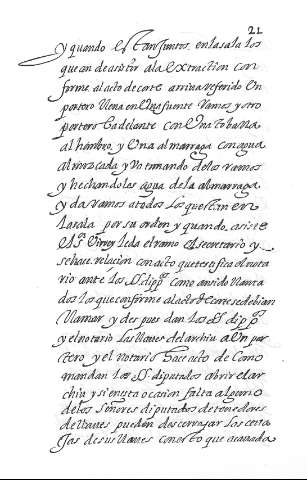 21
y quando estan juntos en la sala los
que an de asistir a la extraction con
forme al acto de corte arriva referido Un
portero lleva en Una fuente Ramos y otro
portero adelante con Una toballa
al hombro, y Una almarraga con agua
almizcada y Va tomando de los ramos
y hechandolas agua de la almarraga
y da ramos a todos los que estan en
la sala por su orden y quando asiste
el sr Virrey le da el ramo el secretario y
se hace relacion con acto que testifica el nota
rio ante los SS. dippdos como an sido llama
dos los que conforme al acto de corte se debian
llamar y despues dan los SS. dippdos
y el notario las llaves del archiu a Un por
tero, y el notario hace acto de como
mandan los SS. diputados abrir el ar
chiu y si en esta ocasion falta alguno
de los señores diputados detenedores
de llaves pueden descerrajar las cerra
jas de sus llaves con esto que acavada